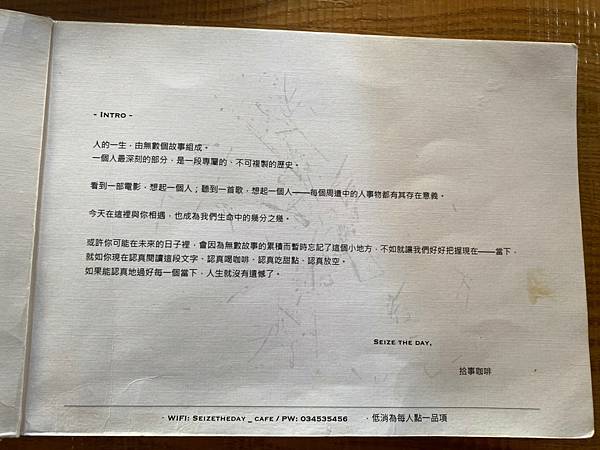 - INTRO -
人的一生，由無數個故事組成。
一個人最深刻的部分，是一段專屬的、不可複製的歷史。
看到一部電影，想起一個人；聽到一首歌，想起一個人——每個周遭中的人事物都有其存在意義。
今天在這裡與你相遇，也成為我們生命中的幾分之幾。
或許你可能在未來的日子裡，會因為無數故事的累積而暫時忘記了這個小地方，不如就讓我們好好把握現在——當下，
就如你現在認真閱讀這段文字、認真喝咖啡、認真吃甜點、認真放空。
如果能認真地過好每一個當下，人生就沒有遺憾了。
SEIZE THE DAY,
拾事咖啡
· WIFI: SEIZETHEDAY _ CAFE / PW: 034535456 · 低消為每人點一品項